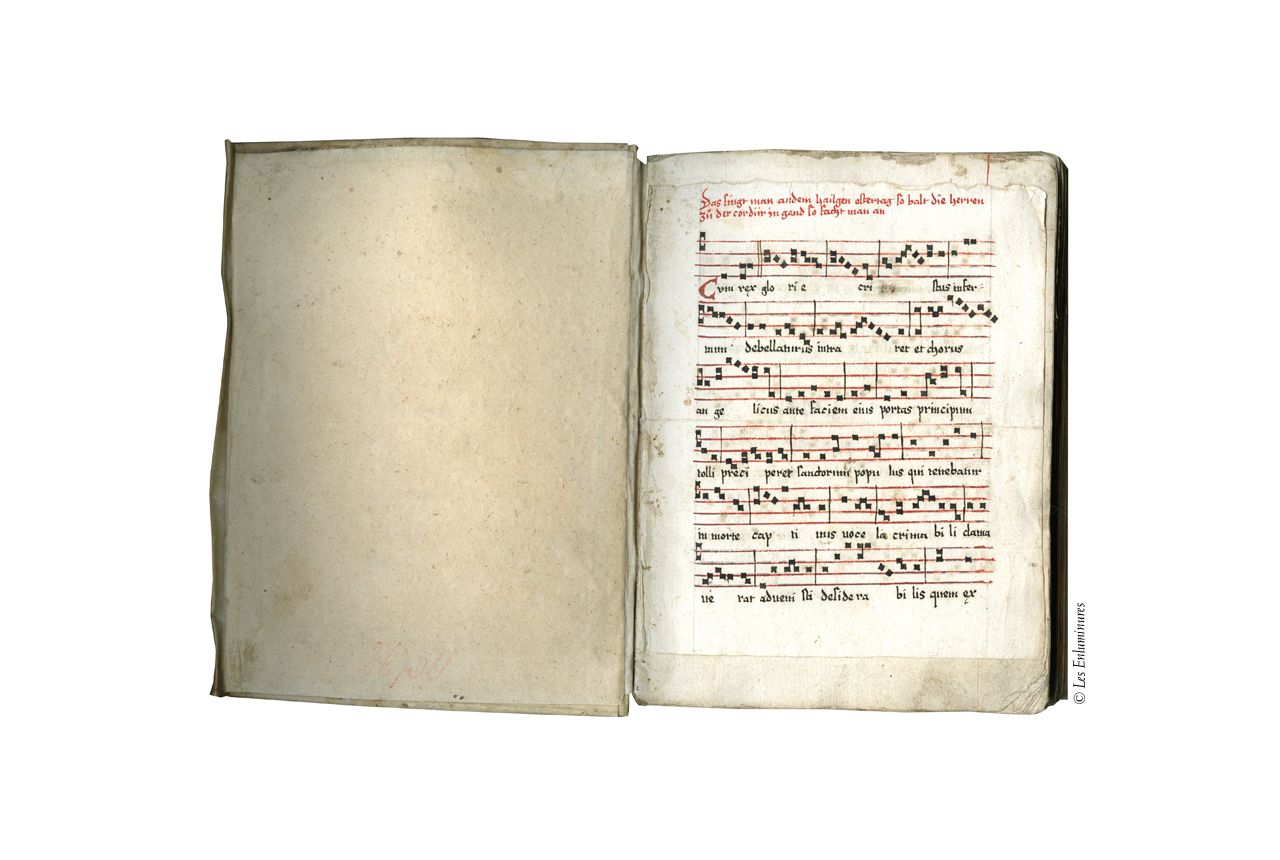 Das singt man an dem hailgen ostertag so balt die herren
zů der cor dür in gand so facht man an
Cum rex glo ri e cri stus infer-
num debellaturus intra ret et chorus
an ge licus ante faciem eius portas principum
tolli preci peret sanctorum popu lus qui tenebatur
in morte cap ti uus uoce la crima bi li clama
ue rat adueni sti deside ra bi lis quem ex
© Les Enluminures